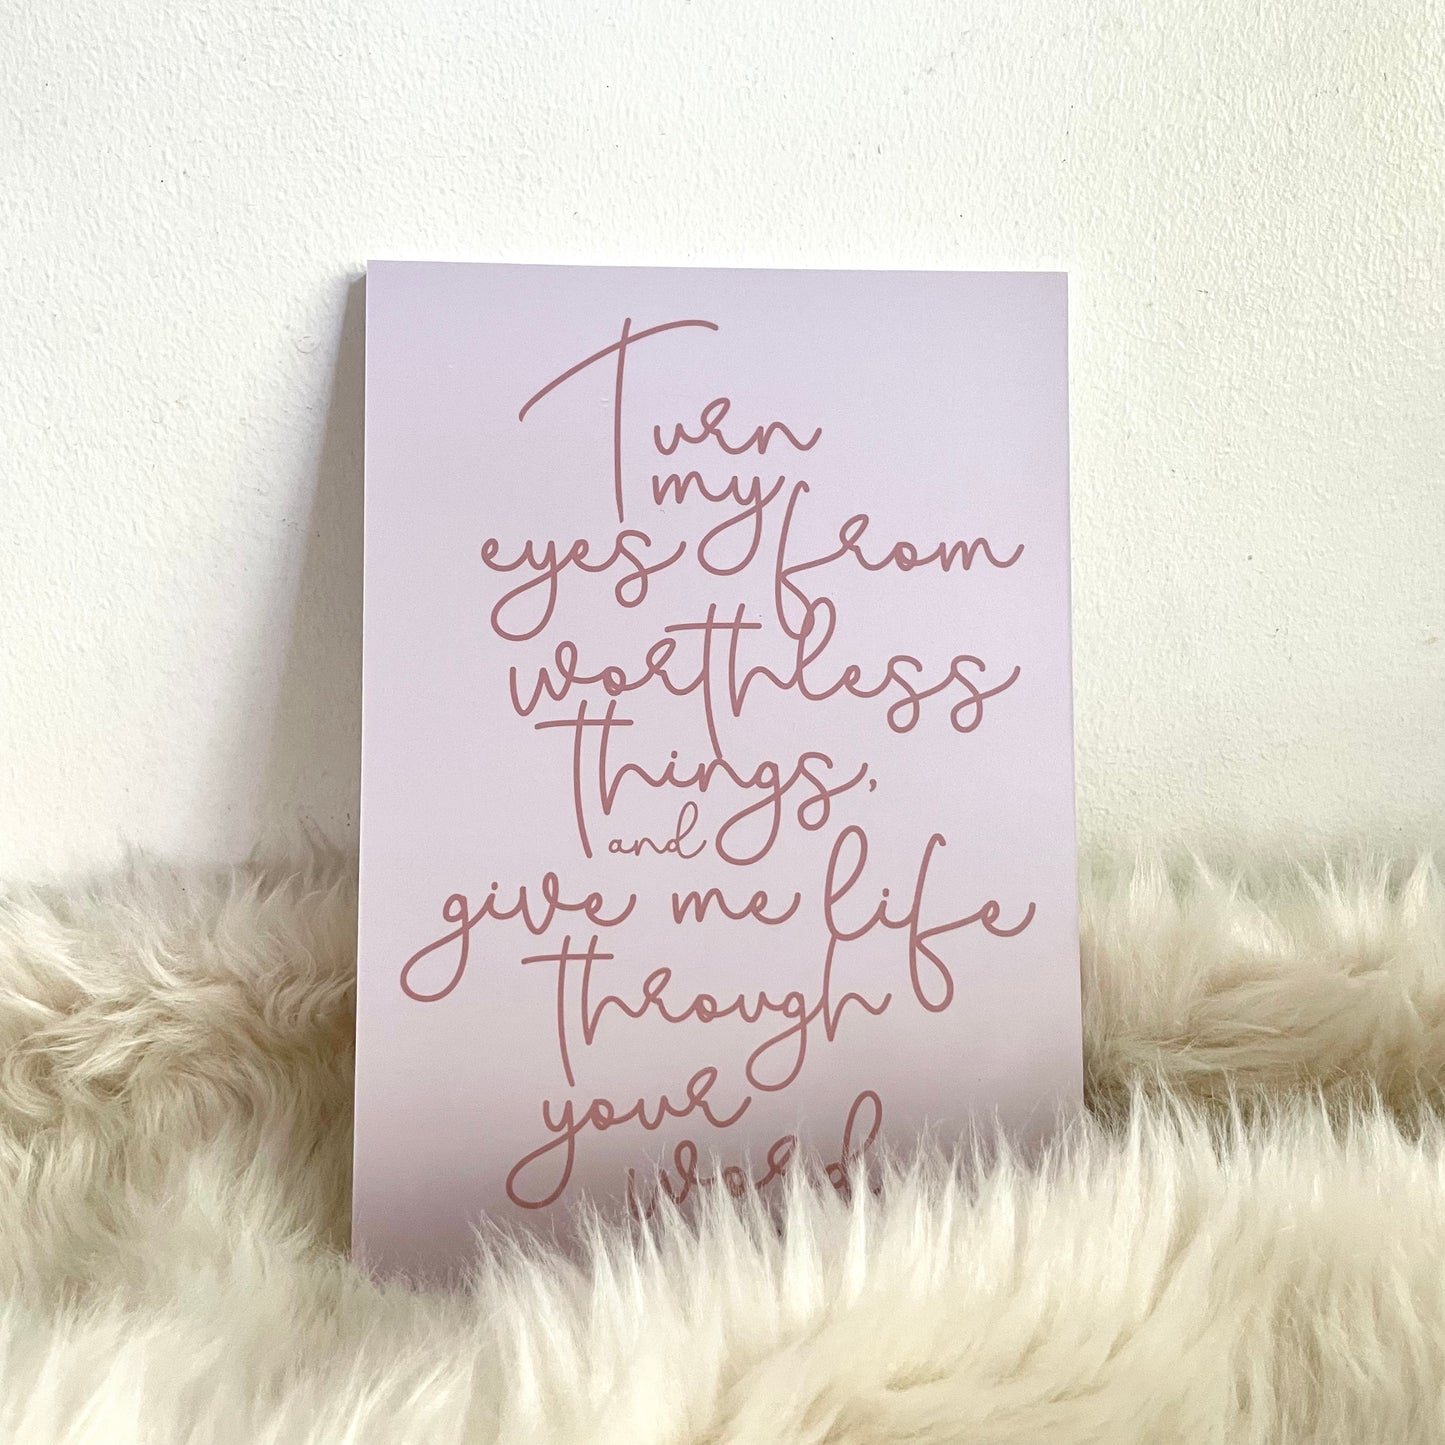 Turn
my
eyes from
worthless
things,
and
give me life
through
your
word